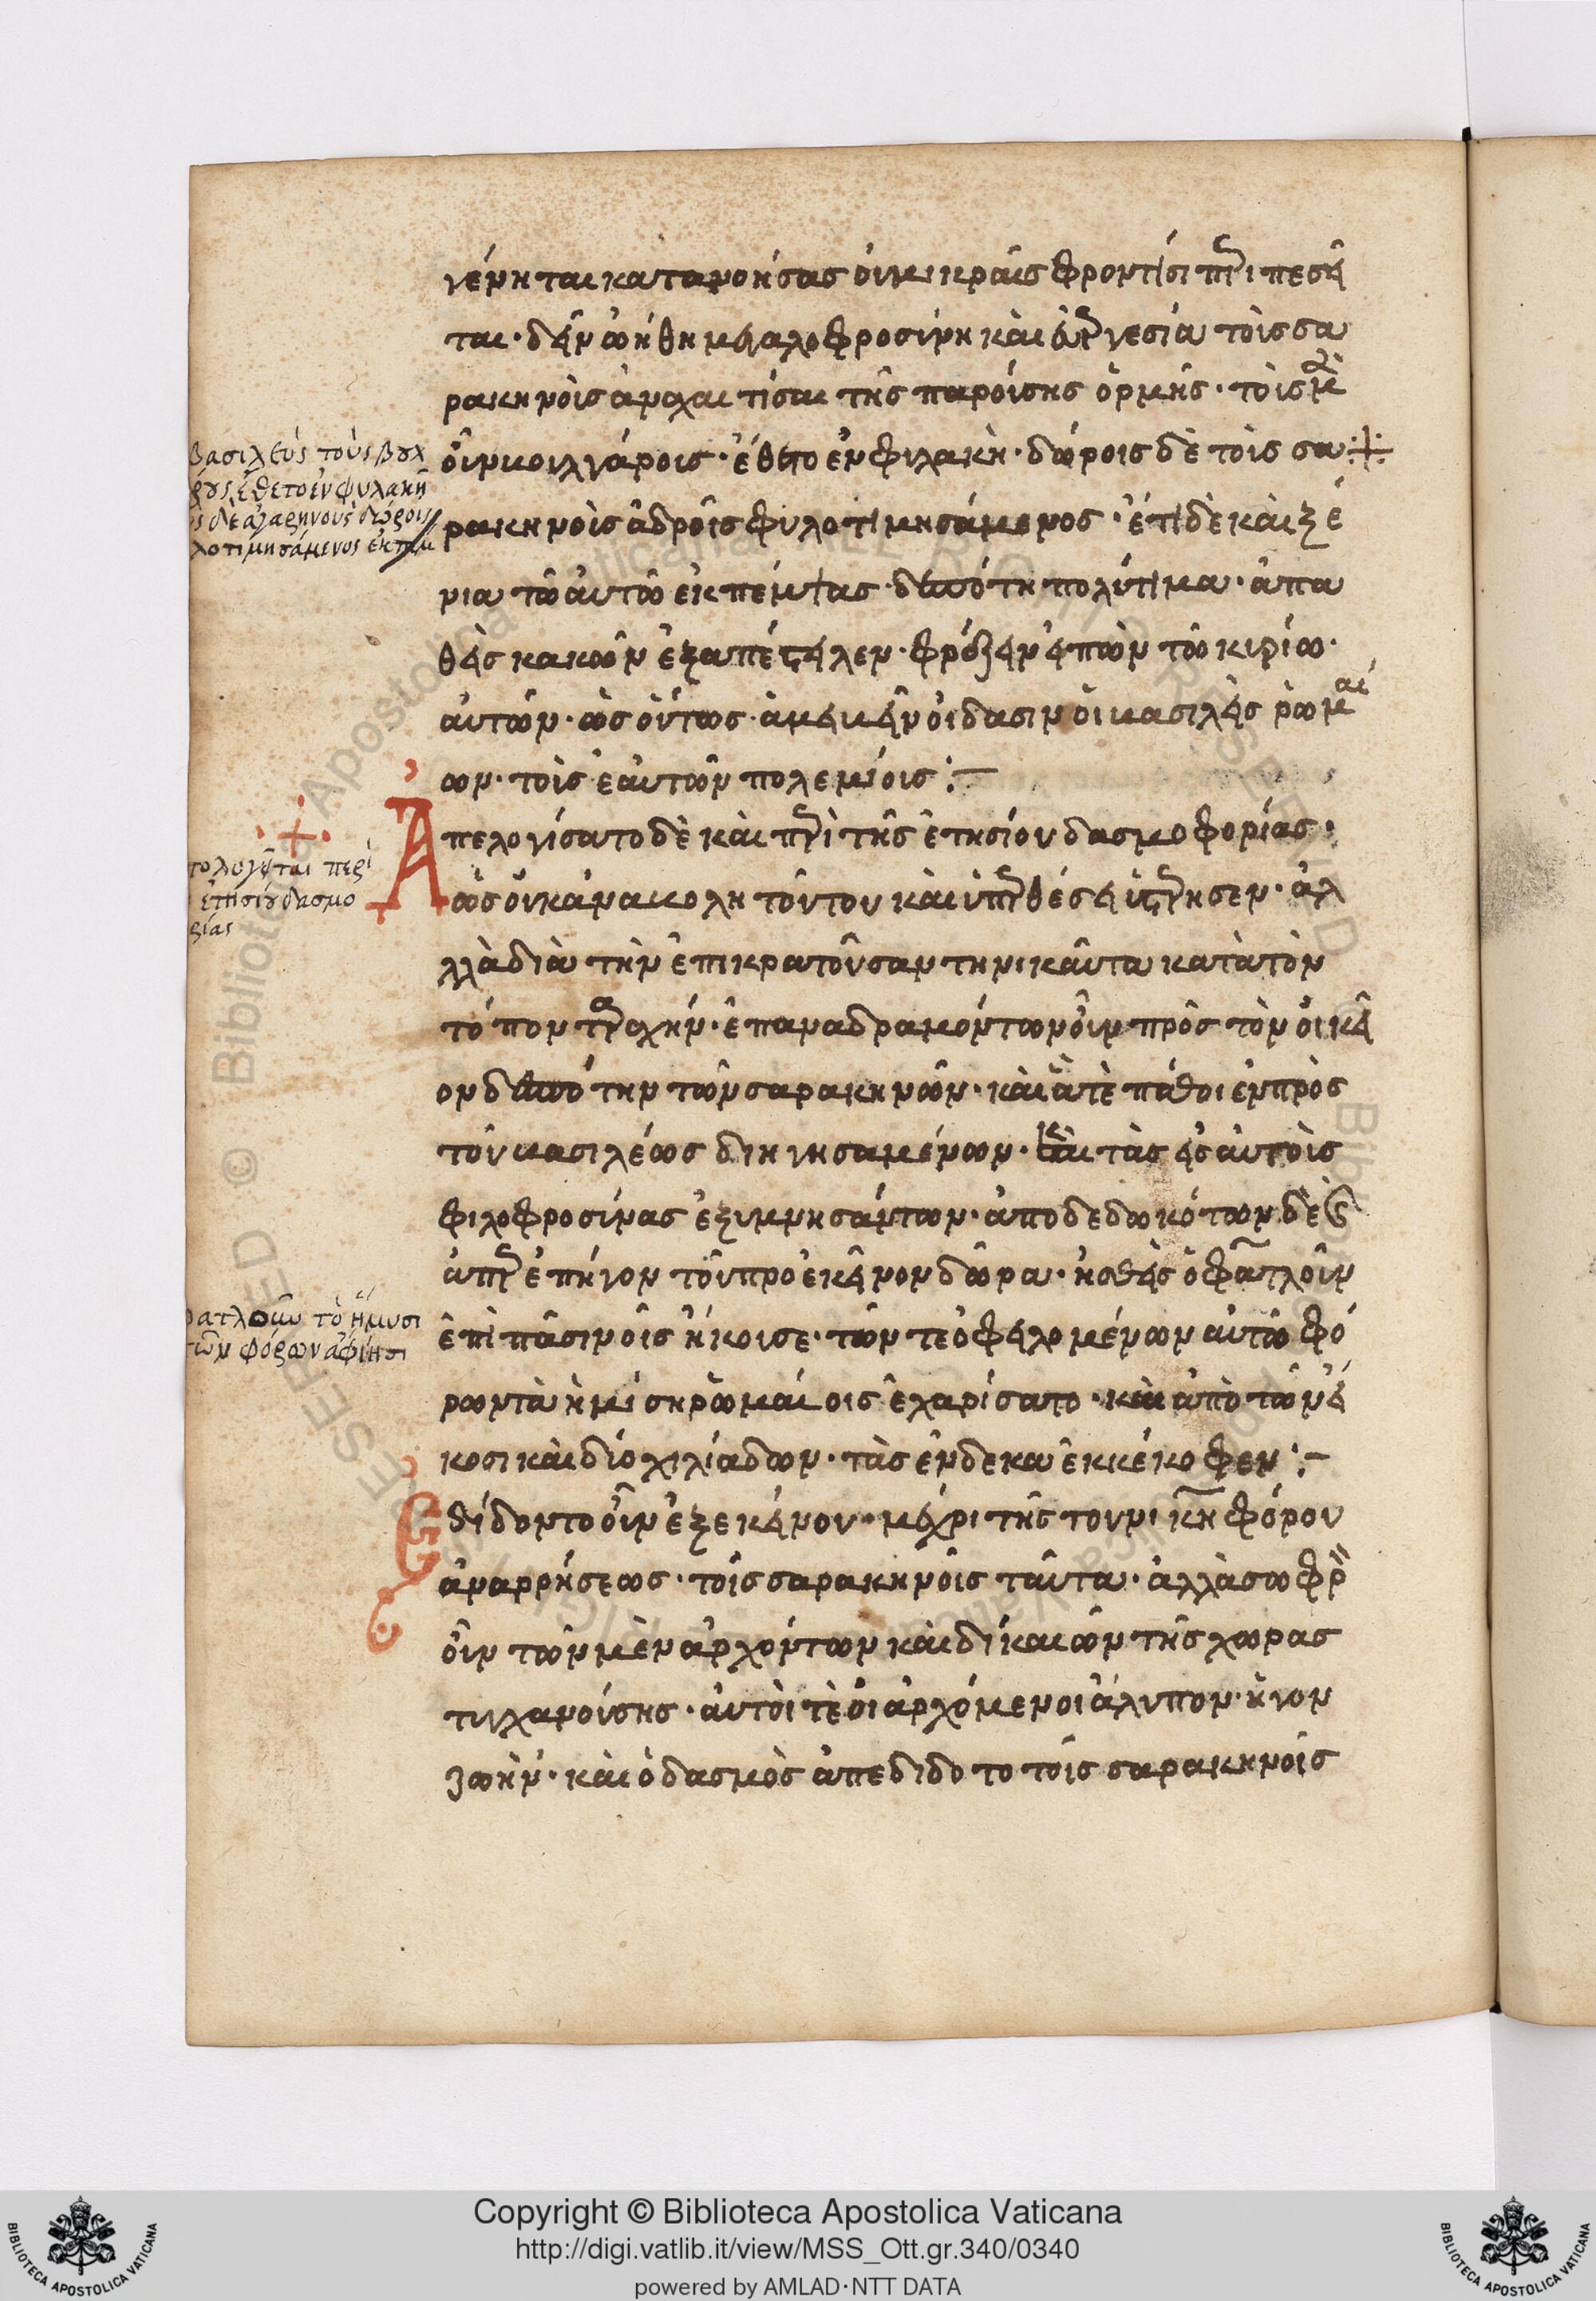 γένηται κατανοήσας οὐ μικραῖς φροντίσι περιπεσῆ
ται· δεῖν ὠήθη μεγαλοφροσύνη καὶ εὐεργεσία τοῖς σα
ρακηνοῖς ἀναχαιτίσαι τῆς παρούσης ὁρμῆς· τοῖς μὲν
οὖν βουλγάροις· ἔθετο ἐν φυλακῆ· δώροις δὲ τοῖς σα
ρακηνοῖς ἁδροῖς φυλοτιμησάμενος· ἔτι δὲ καὶ ξέ
νια τῶ αὐτῶ ἐκπέμψας δεσπότη πολύτιμα· ἀπα
θεῖς κακῶν ἐξαπέστειλεν· φράζειν εἰπὼν τῶ κυρίω·
αὐτῶν· ὡς οὕτως· ἀμείβειν οἴδασιν οἱ βασιλεῖς ῥωμαί
ων· τοῖς ἑαυτῶν πολεμίοις :—
Ἀπελογίσατο δὲ καὶ περὶ τῆς ἐτησίου δασμοφορίας·
ὡς οὐκ ἀναβολῆ τούτου καὶ ὑπερθέσει ὑστέρησεν· ἀλ
λλὰ διὰ τὴν ἐπικρατοῦσαν τηνικαῦτα κατὰ τὸν
τόπον ταραχήν· ἐπαναδραμόντων οὖν πρὸς τὸν οἰκεῖ
ον δεσπότην τῶν σαρακηνῶν· καὶ ἅτε πάθοιεν πρὸς
τοῦ βασιλέως διηγησαμένων· καὶ τὰς εἰς αὐτοὺς
φιλοφροσύνας ἐξυμνησάντων· ἀποδεδωκότων δὲ καὶ
ἅπερ ἐπῆγον τοῦ πρὸ ἐκεῖνον δῶρα· ἡσθεὶς ὁ φατλοῦν
ἐπὶ πᾶσιν οἷς ἤκουσε· τῶν τε ὀφειλομένων αὐτῶ φό
ρων τὰ ἡμίση ῥωμαίοις ἐχαρίσατο· καὶ ἀπὸ τῶν εἴ
κοσι καὶ δύο χιλιάδων· τὰς ἕνδεκα ἐκκέκοφεν :—
Ἐδίδοντο οὖν ἐξ ἐκείνου· μέχρι τῆς τουρνικη φόρου
ἀναρρήσεως· τοῖς σαρακηνοῖς ταῦτα· ἀλλὰ σωφρ
οὖν τῶν μὲν ἀρχόντων καὶ δικαιῶν τῆς χωρας
τυχανούσης· αὐτοί τε οἱ ἀρχόμενοι ἄλυπον· ἦγον
ζωὴν· καὶ ὁ δασμὸς ἀπεδιδοτο τοῖς σαρακηνοῖς
βασιλεὺς τοὺς βουλ
γάρους ἔθετο ἐν φυλακῆ
δὲ ἀγαρηνοὺς δώροις
λοτιμησάμενος ἐκπεμ
πολογεῖται περὶ
ἐτησίου δασμο
ρίας
φατλοῦν τὸ ἥμυσι
τῶν φόρων ἀφίησι
Copyright © Biblioteca Apostolica Vaticana
http://digi.vatlib.it/view/MSS_Ott.gr.340/0340
powered by AMLAD·NTT DATA
BIBLIOTECA APOSTOLICA VATICANA
BIBLIOTECA APOSTOLICA VATICANA